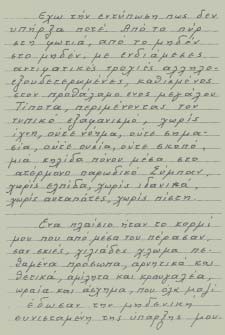 Έχω την εντύπωση πως δεν
υπήρξα ποτέ. Από το πυρ
στη φωτιά, από το μηδέν
στο μηδέν, με ενδιάμεσες
αντιματικές τροχιές αλληλο-
εξουδετερωμένες, καθισμένος
στον προθάλαμο ενός μεγάλου
Τίποτα, περιμένοντας τον
τυπικό εξαφανισμό, χωρίς
ίχνη, ούτε νεύμα, ούτε σημα-
σία, ούτε ουσία, ούτε σκοπό,
μιά κηλίδα πόνου μέσα στο
απέραντο παρωδικό Σύμπαν,
χωρίς ελπίδα, χωρίς ιδανικά,
χωρίς αυταπάτες, χωρίς πίστη.
Ένα πλαίσιο ήταν το κορμί
μου που από μέσα του πέρασαν,
σαν σκιές, χιλιάδες χλωμά πε-
θαμένα πρόσωπα, αρνητικά και
θετικά, αμίλητα και κραυγαλέα,
ωραία και άσχημα, που όλα μαζί
έδωσαν την μηδενική
συνισταμένη της ύπαρξής μου.